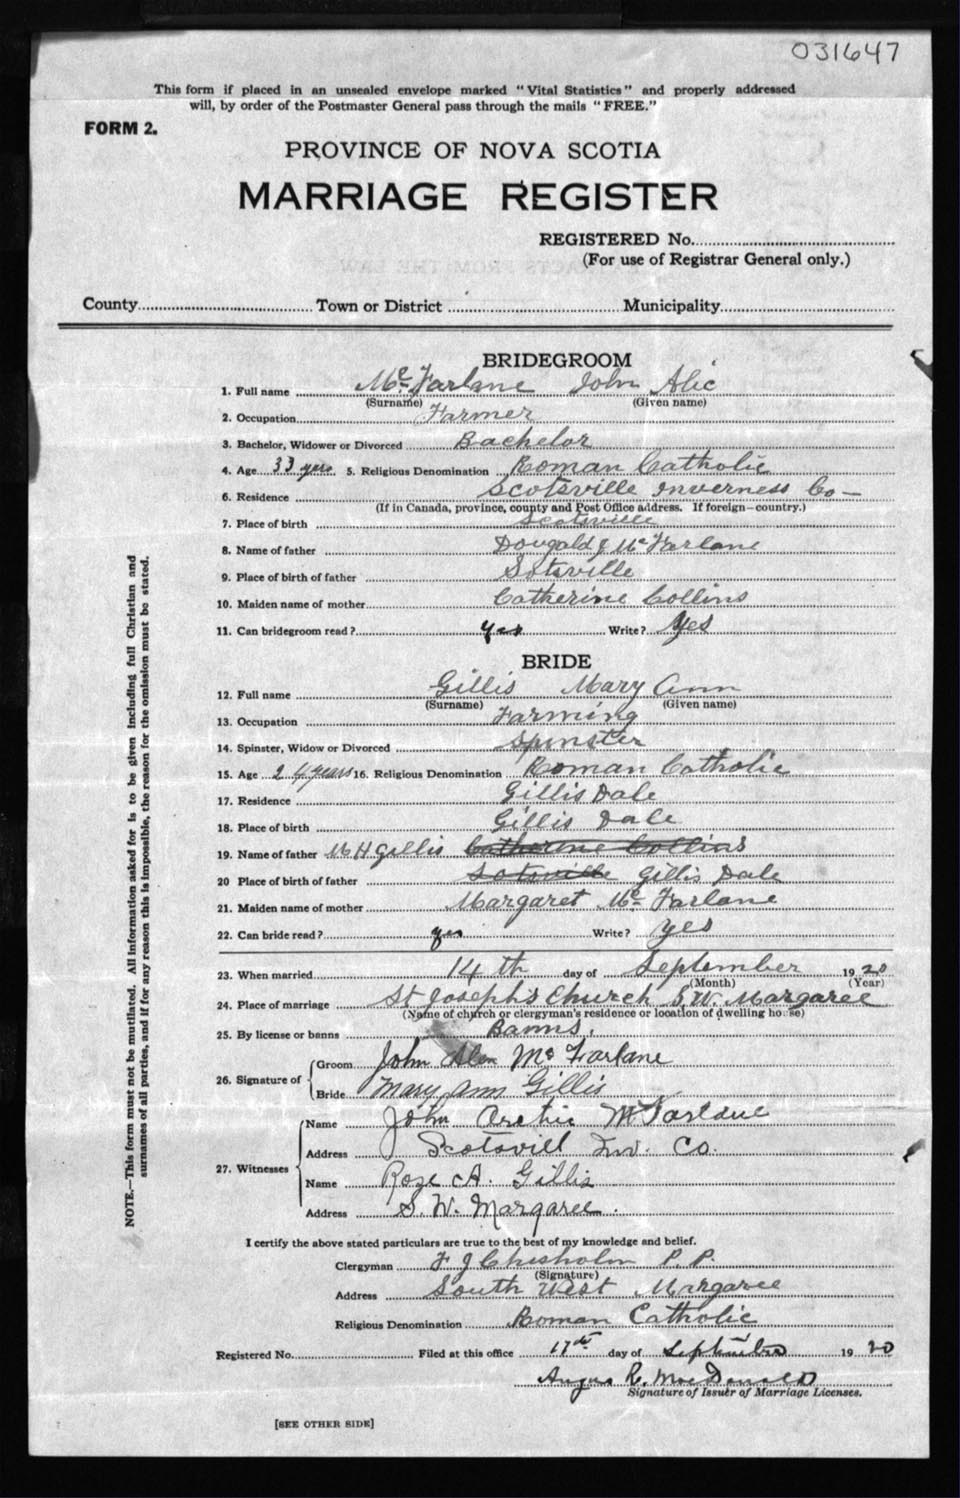 031647
This form if placed in an unsealed envelope marked "Vital Statistics" and properly addressed
will, by order of the Postmaster General pass through the mails "FREE."
FORM 2.
PROVINCE OF NOVA SCOTIA
MARRIAGE REGISTER
REGISTERED No.
(For use of Registrar General only.)
County Town or District Municipality
BRIDEGROOM
1. Full name McFarlane John Alic
(Surname) (Given name)
2. Occupation Farmer
3. Bachelor, Widower or Divorced Bachelor
4. Age 33 years 5. Religious Denomination Roman Catholic
6. Residence Scotsville Inverness Co—
(If in Canada, province, county and Post Office address. If foreign—country.)
7. Place of birth Scotsville
8. Name of father Dougald J McFarlane
9. Place of birth of father Sotsville
10. Maiden name of mother Catherine Collins
11. Can bridegroom read? yes Write? Yes
BRIDE
12. Full name Gillis Mary Ann
(Surname) (Given name)
13. Occupation Farming
14. Spinster, Widow or Divorced Spinster
15. Age 24 years 16. Religious Denomination Roman Catholic
17. Residence Gillis Dale
18. Place of birth Gillis Dale
19. Name of father M H Gillis Catherine Collins
20 Place of birth of father Sotsville Gillis Dale
21. Maiden name of mother Margaret McFarlane
22. Can bride read? yes Write? yes
23. When married 14th day of September 1920
(Month) (Year)
24. Place of marriage St Joseph's Church S.W. Margaree
(Name of church or clergyman's residence or location of dwelling house)
25. By license or banns Banns.
26. Signature of Groom John Alex McFarlane
Bride Mary Ann Gillis
27. Witnesses Name John McFarlane
Address Scotsvill Inv. Co.
Name Rose A. Gillis
Address S. W. Margaree.
I certify the above stated particulars are true to the best of my knowledge and belief.
Clergyman F J Chisholm P. P.
(Signature)
Address South West Margaree
Religious Denomination Roman Catholic
Registered No. Filed at this office 17th day of September 1920
Angus R. MacDonald
Signature of Issuer of Marriage Licenses.
[SEE OTHER SIDE]
NOTE.—This form must not be mutilated. All information asked for is to be given including full Christian and
surnames of all parties, and if for any reason this is impossible, the reason for the omission must be stated.